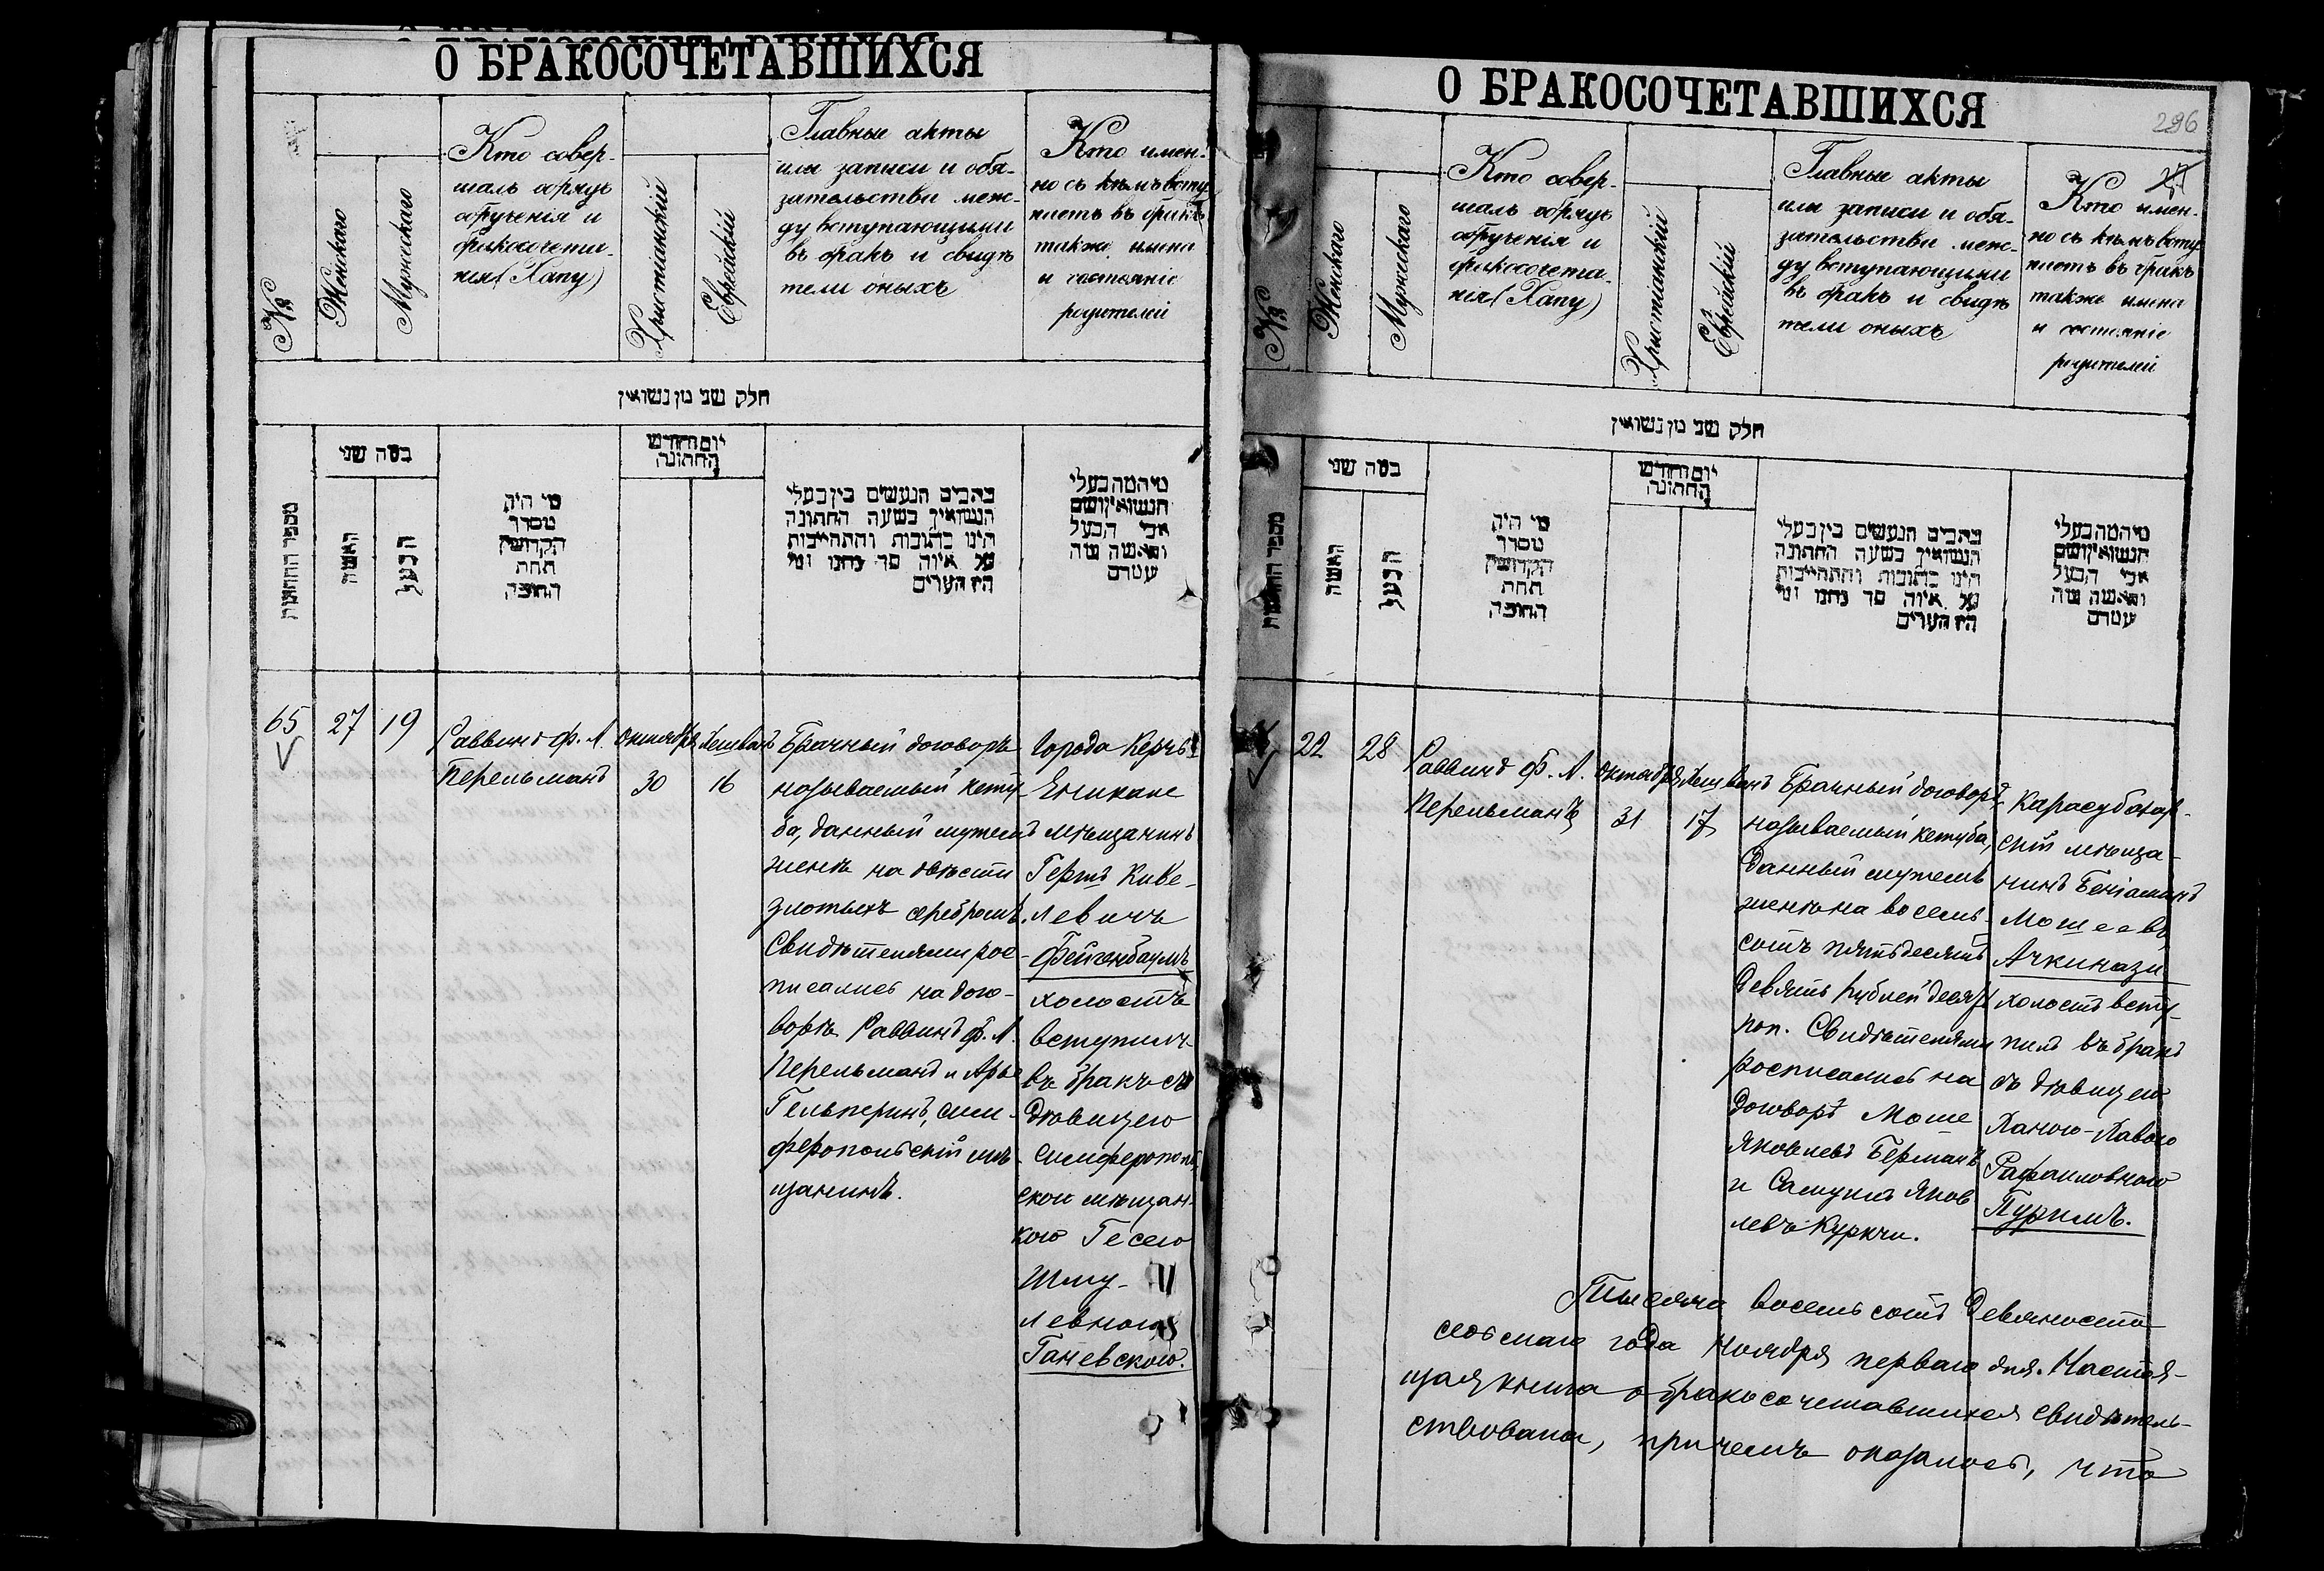 О БРАКОСОЧЕТАВШИХСЯ
№
Женскаго
Мужескаго
Кто совер-
шалъ обрядъ
обрученія и
бракосочета-
нія (Хапу)
Христіанскій
Еврейскій
Главные акты
или записи и обя-
зательства меж-
ду вступающими
въ бракъ и свидѣ
тели оныхъ
Кто имен-
но съ кѣмъ всту
паетъ въ бракъ
также имена
и состояніе
родителей
חלק שני מן נשואין
מספר החתונות
כמה שני
האשה
הבעל
מי היה
מסדר
הקדושין
תחת
החופה
יום וחודש
החתונה
כתבים הנעשים בין בעלי
הנשואין בשעה החתונה
היינו כתובות והתחייבות
על איזה סך נתנו ומי
היו העדים
מי המה בעלי
הנשואין ושם
אבי הבעל
והאשה מה
עטרם
65
27
19
Раввинъ Ф. Л.
Перельманъ
Октября
30
Хешванъ
16
Брачный договоръ
называемый кету-
ба, данный мужемъ
женѣ на двѣсти
злотыхъ серебромъ.
Свидѣтелями рос-
писались на дого-
ворѣ Раввинъ Ф. Л.
Перельманъ и Арье
Гельперинъ, сим-
феропольскій мѣ-
щанинъ.
Города Керчь
Еникале
мѣщанинъ
Гершъ Киве-
левичъ
Фейгенбаумъ
холостъ
вступилъ
въ бракъ съ
дѣвицею
симферополь
ской мѣщан-
кою Гесею
Шму-
левною
Ганевскою.
О БРАКОСОЧЕТАВШИХСЯ
296
№
Женскаго
Мужескаго
Кто совер-
шалъ обрядъ
обрученія и
бракосочета-
нія (Хапу)
Христіанскій
Еврейскій
Главные акты
или записи и обя-
зательства меж-
ду вступающими
въ бракъ и свидѣ
тели оныхъ
Кто имен-
но съ кѣмъ всту
паетъ въ бракъ
также имена
и состояніе
родителей
חלק שני מן נשואין
מספר החתונות
כמה שני
האשה
הבעל
מי היה
מסדר
הקדושין
תחת
החופה
יום וחודש
החתונה
כתבים הנעשים בין בעלי
הנשואין בשעה החתונה
היינו כתובות והתחייבות
על איזה סך נתנו ומי
היו העדים
מי המה בעלי
הנשואין ושם
אבי הבעל
והאשה מה
עטרם
22
28
Раввинъ Ф. Л.
Перельманъ
Октября
31
Хешванъ
17
Брачный договоръ,
называемый кетуба,
данный мужемъ
женѣ на восемь-
сотъ пятьдесятъ
девять рублей десять
коп. Свидѣтелями
росписались на
договорѣ Моше
Яковлевъ Берманъ
и Самуилъ Яков
левъ Куркчи.
Карасубазар-
скій мѣща-
нинъ Беніаминъ
Мошеевъ
Ачкинази
холостъ всту-
пилъ въ бракъ
съ дѣвицею
Ханою-Лавою
Рафаиловною
Пуримъ.
Тысяча восемьсотъ девяносто
седьмаго года Ноября перваго дня. Настоя-
щая книга о бракосочетавшихся свидѣтель-
ствована, причемъ оказалось, что